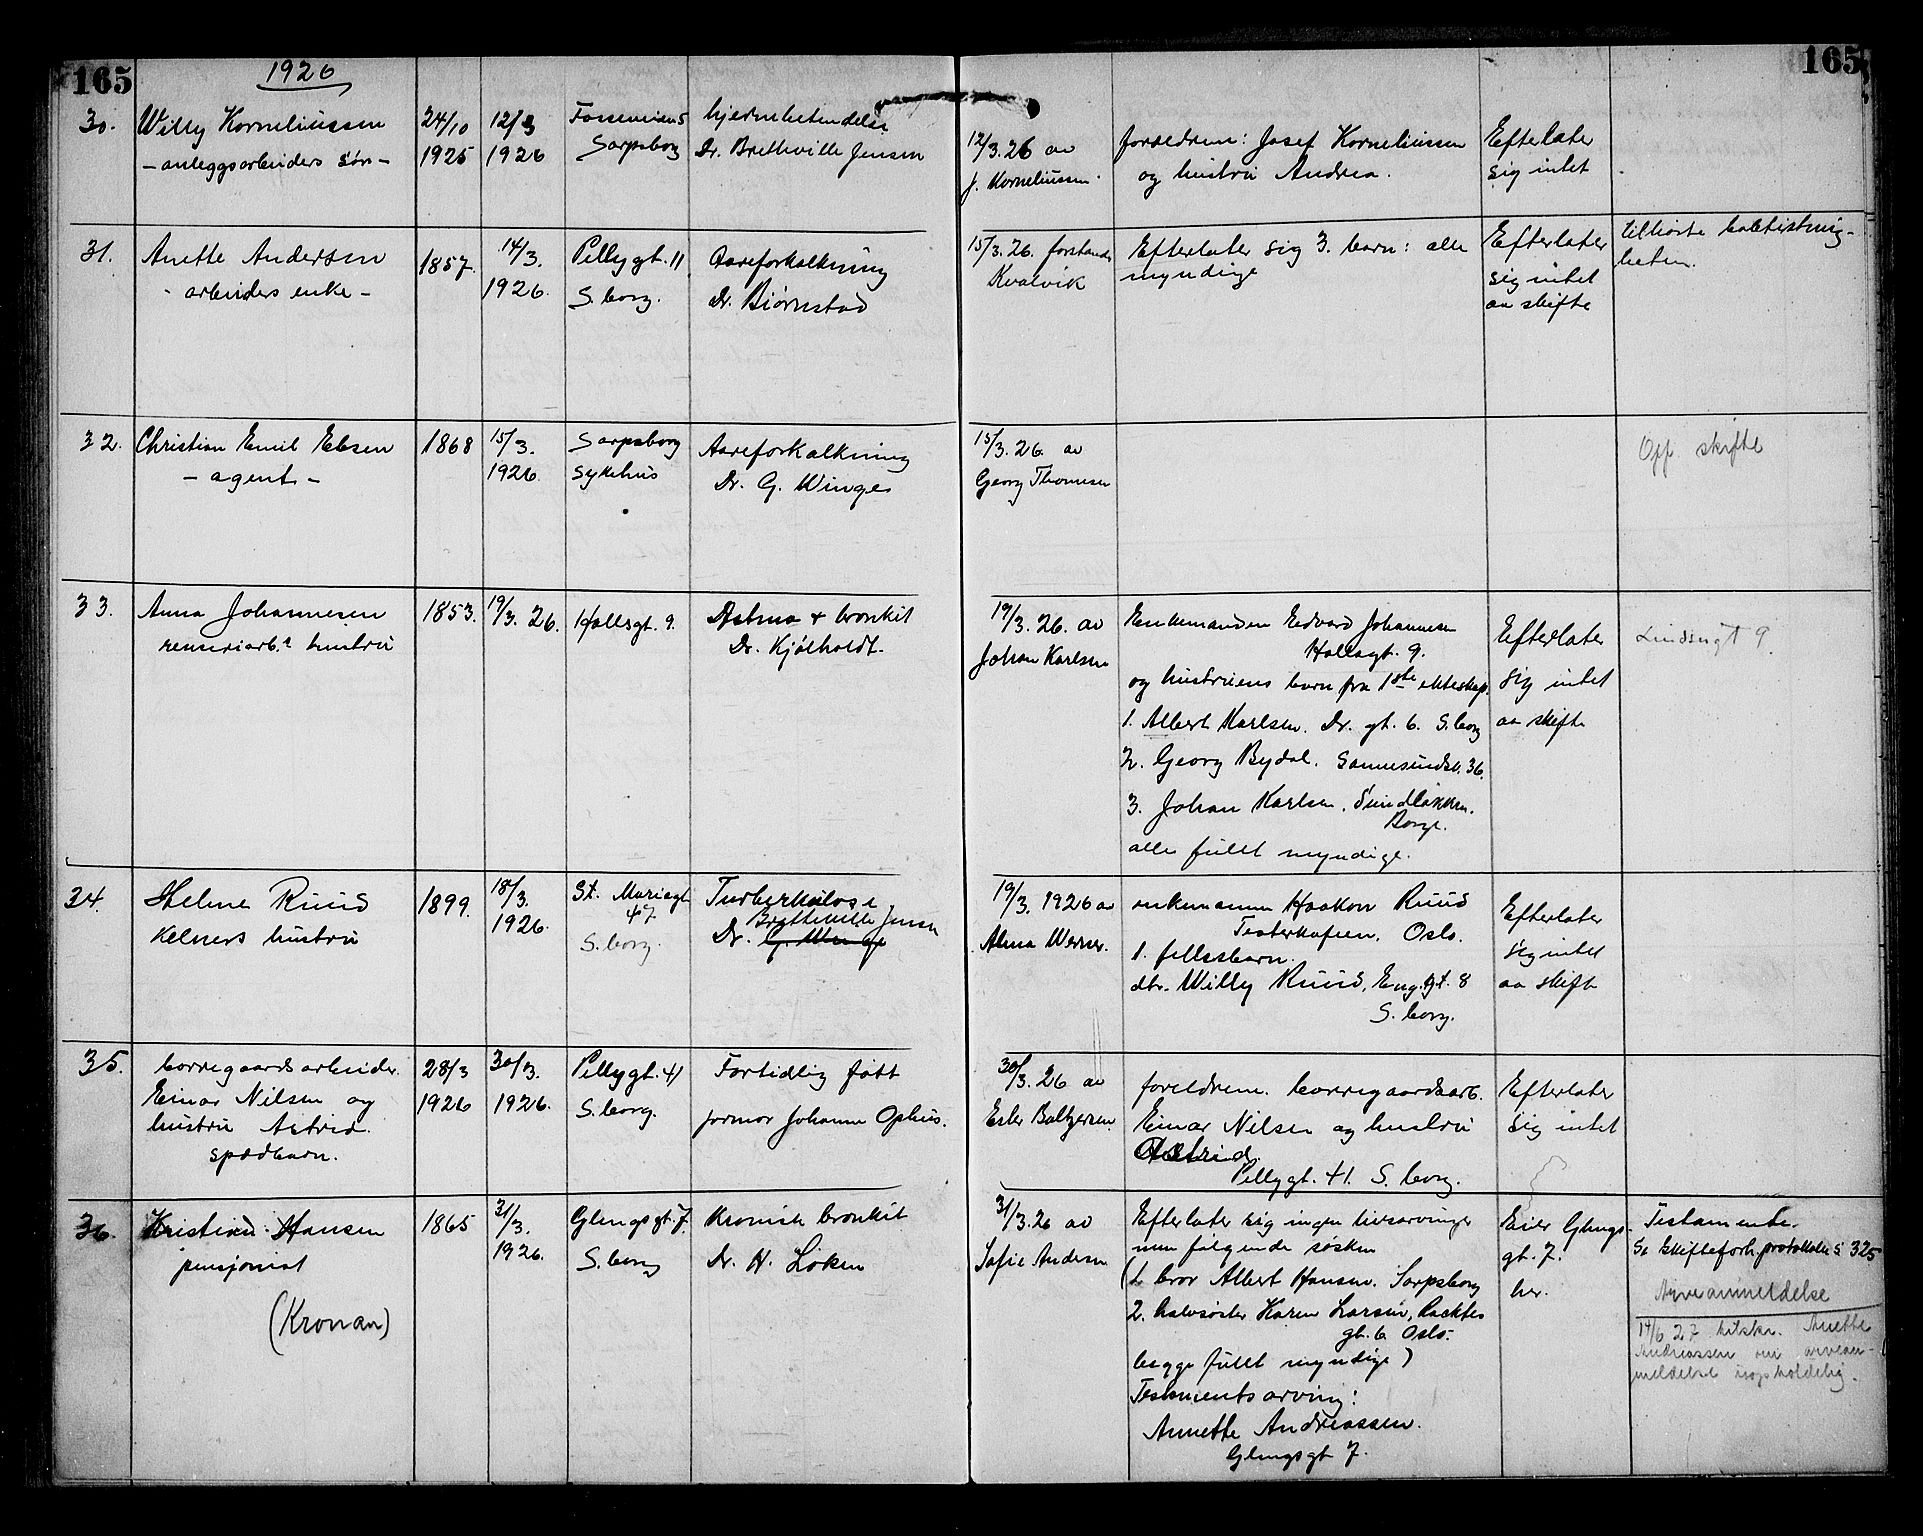 165
1926
165
30.
Willy Korneliussen
- anleggsarbeiders søn -
24/10
1925
12/3
1926
Sarpsborg
hjernebetendelse
Dr. Bretteville Jensen
12/3.26 av
J. Korneliussen.
foreldrene: Josef Korneliussen
og hustru Andrea.
Efterlater
sig intet
31.
Anette Andersen
- arbeiders enke -
1857.
14/3.
1926.
Pellygt. 11
S.borg.
Aareforkalkning
Dr. Bjørnstad
15/3.26. forstander
Kvalvik
Efterlater sig 3. barn: alle
myndige
Efterlater
sig intet
aa skifte
tilhørte babtistmenig-
heten.
32.
Christian Emil Ebsen
- agent -
1868
15/3.
1926.
Sarpsborg
sykehus
Aareforkalkning
Dr. G. Winge
15/3.26. av
Georg Thomesen
Off. skifte
33.
Anna Johannesen
renseriarb.s hustru
1853.
19/3. 26.
Hallsgt. 9.
Astma + bronkit
Dr. Kjølholdt.
19/3. 26. av
Johan Karlsen
Enkemanden Edvard Johannesen
Hallsgt. 9.
og hustruens barn fra 1ste ekteskap.
1. Albert Karlsen. Dr. gt. 6. S.borg
2. Georg Bydal. Sannesundsv. 36.
3. Johan Karlsen. Sundløkken.
Borge.
alle fullt myndige.
Efterlater
sig intet
aa skifte
Lundsgt 9.
34.
Helene Ruud
Kelners hustru
1899.
18/3.
1926.
St. Mariegt
47
S.borg.
Turberkulose
Bretteville Jensen
Dr. G. Winge
19/3. 1926 av
Alma Werner.
enkemann Haakon Ruud
Oslo.
1. fellesbarn.
dtr. Willy Ruud, Eng.gt. 8
S.borg.
Efterlater
sig intet
aa skifte
35.
borregaardsarbeider
Einar Nilsen og
hustru Astrid.
spædbarn.
28/3
1926
30/3.
1926.
Pellygt. 41
S.borg.
Fortidlig født
jormor Johanne Ophus.
30/3.26 av
Ester Baltzersen.
foreldrene. borregaardsarb.
Einar Nilsen og hustru
Astrid.
Pellygt. 41. S.borg.
Efterlater
sig intet
36.
Kristian Hansen
pensjonist
(Kronan)
1865
31/3.
1926.
Glengsgt. 7.
S.borg
Kronisk bronkit
Dr. H. Løken
31/3.26 av
Sofie Andersen
Efterlater sig ingen livsarvinger
men følgende søsken
(1. bror Albert Hansen. Sarpsborg
2. halvsøster Karen Larsen,
gt. 6 Oslo.
begge fullt myndige)
Testamentsarving:
Annette Andreassen.
Glengsgt 7.
Eier Glengs-
gt. 7.
her.
Testamente.
Se skifteforh.protokollen s 325
Arveanmeldelse
14/6 27 tilskr. Anette
Andreassen om arvean-
meldelse uopholdelig.